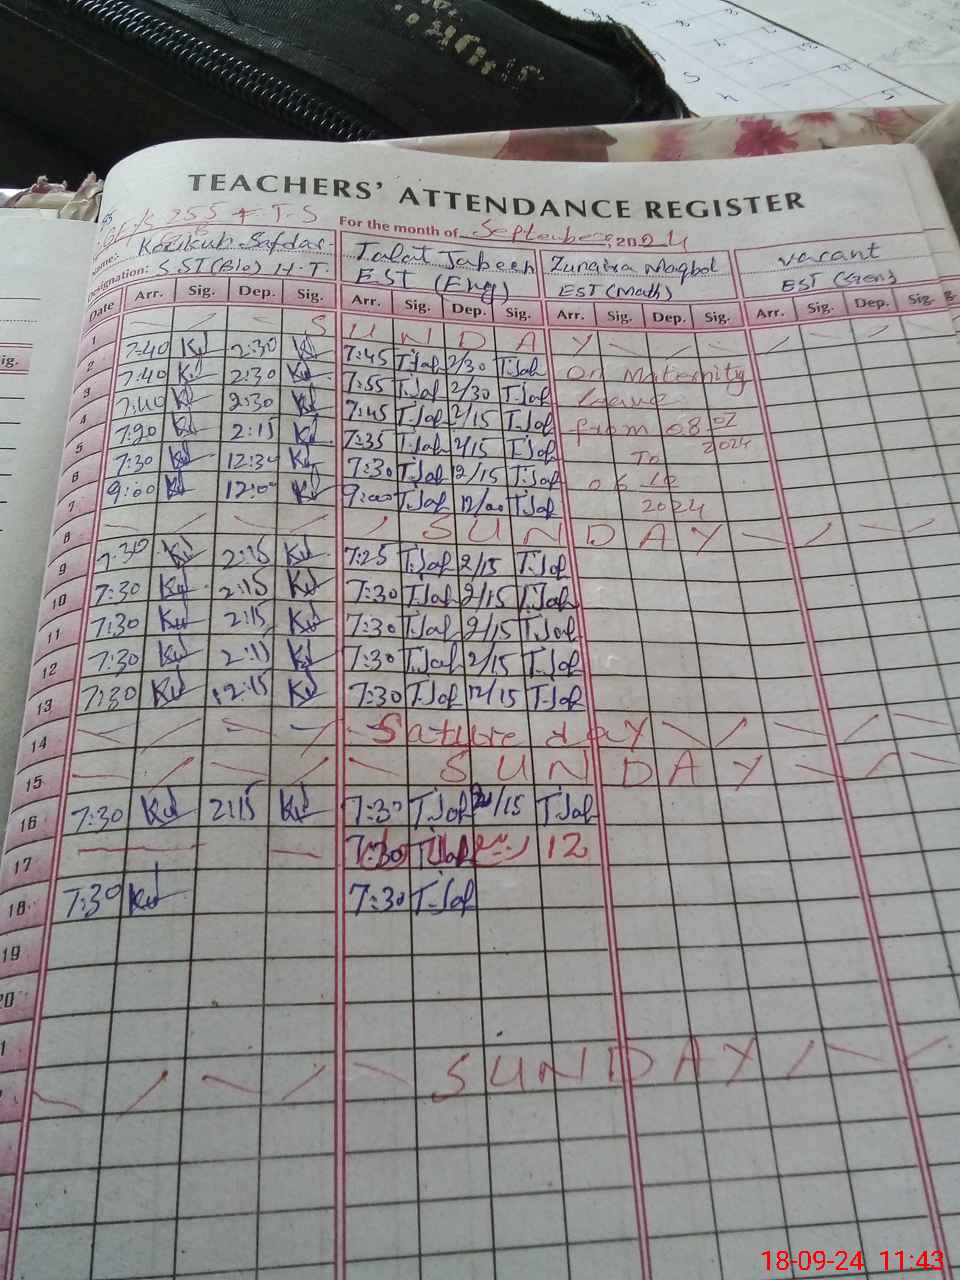 TEACHERS' ATTENDANCE REGISTER
For the month of September, 2024
Name: Kozikub Safdar Talat Jabeen Zunaira Maqbol vacant
Designation: S.ST(Bio) H.T. EST (Eng) EST (Math) EST (Gen)
Date Arr. Sig. Dep. Sig. Arr. Sig. Dep. Sig. Arr. Sig. Dep. Sig. Arr. Sig. Dep. Sig.
1 S U N D A Y
2 7:40 Kd 2:30 Kd 7:45 T.Jaf 2/30 T.Jaf On Maternity
3 7:40 Kd 2:30 Kd 7:55 T.Jaf 2/30 T.Jaf Leave
4 7:40 Kd 2:30 Kd 7:45 T.Jaf 2/15 T.Jaf from 08 07 2024
5 7:20 Kd 2:15 Kd 7:35 T.Jaf 2/15 T.Jaf To
6 7:30 Kd 12:30 Kd 7:30 T.Jaf 12/15 T.Jaf 06 10
7 9:00 Kd 12:00 Kd 9:00 T.Jaf 12/00 T.Jaf 2024
8 S U N D A Y
9 7:30 Kd 2:15 Kd 7:25 T.Jaf 2/15 T.Jaf
10 7:30 Kd 2:15 Kd 7:30 T.Jaf 2/15 T.Jaf
11 7:30 Kd 2:15 Kd 7:30 T.Jaf 2/15 T.Jaf
12 7:30 Kd 2:15 Kd 7:30 T.Jaf 2/15 T.Jaf
13 7:30 Kd 12:15 Kd 7:30 T.Jaf 12/15 T.Jaf
14 Sature day
15 S U N D A Y
16 7:30 Kd 2:15 Kd 7:30 T.Jaf 2/15 T.Jaf
17 7:30 T.Jaf 12
18 7:30 Kd 7:30 T.Jaf
19
20
S U N D A Y
18-09-24 11:43